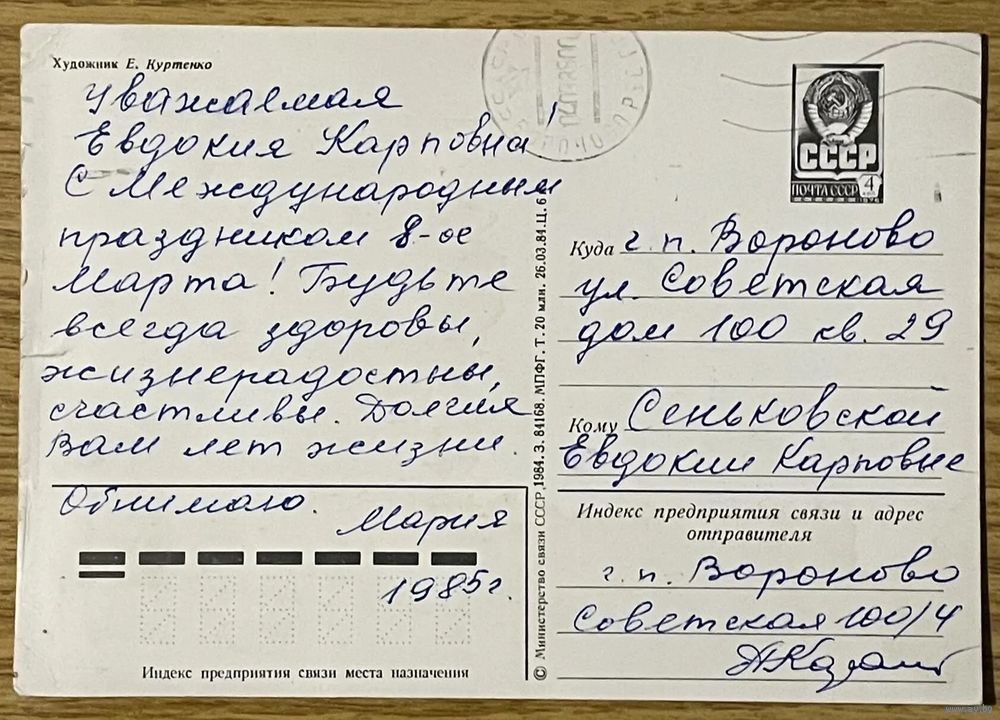 Художник Е. Куртенко
Уважаемая
Евдокия Карповна!
С Международным
праздником 8-ое
Марта! Будьте
всегда здоровы,
жизнерадостны,
счастливы. Долгия
Вам лет жизни.
Обнимаю.
Мария
1985 г.
Индекс предприятия связи места назначения
© Министерство связи СССР, 1984. З. 84168. МПФГ. Т. 20 млн. 26.03.84. Ц. 6
СССР
ПОЧТА СССР 4
1976
Куда г. п. Вороново
ул. Советская
дом 100 кв. 29
Кому Сеньковской
Евдокии Карповне
Индекс предприятия связи и адрес
отправителя
г. п. Вороново
Советская 100/4